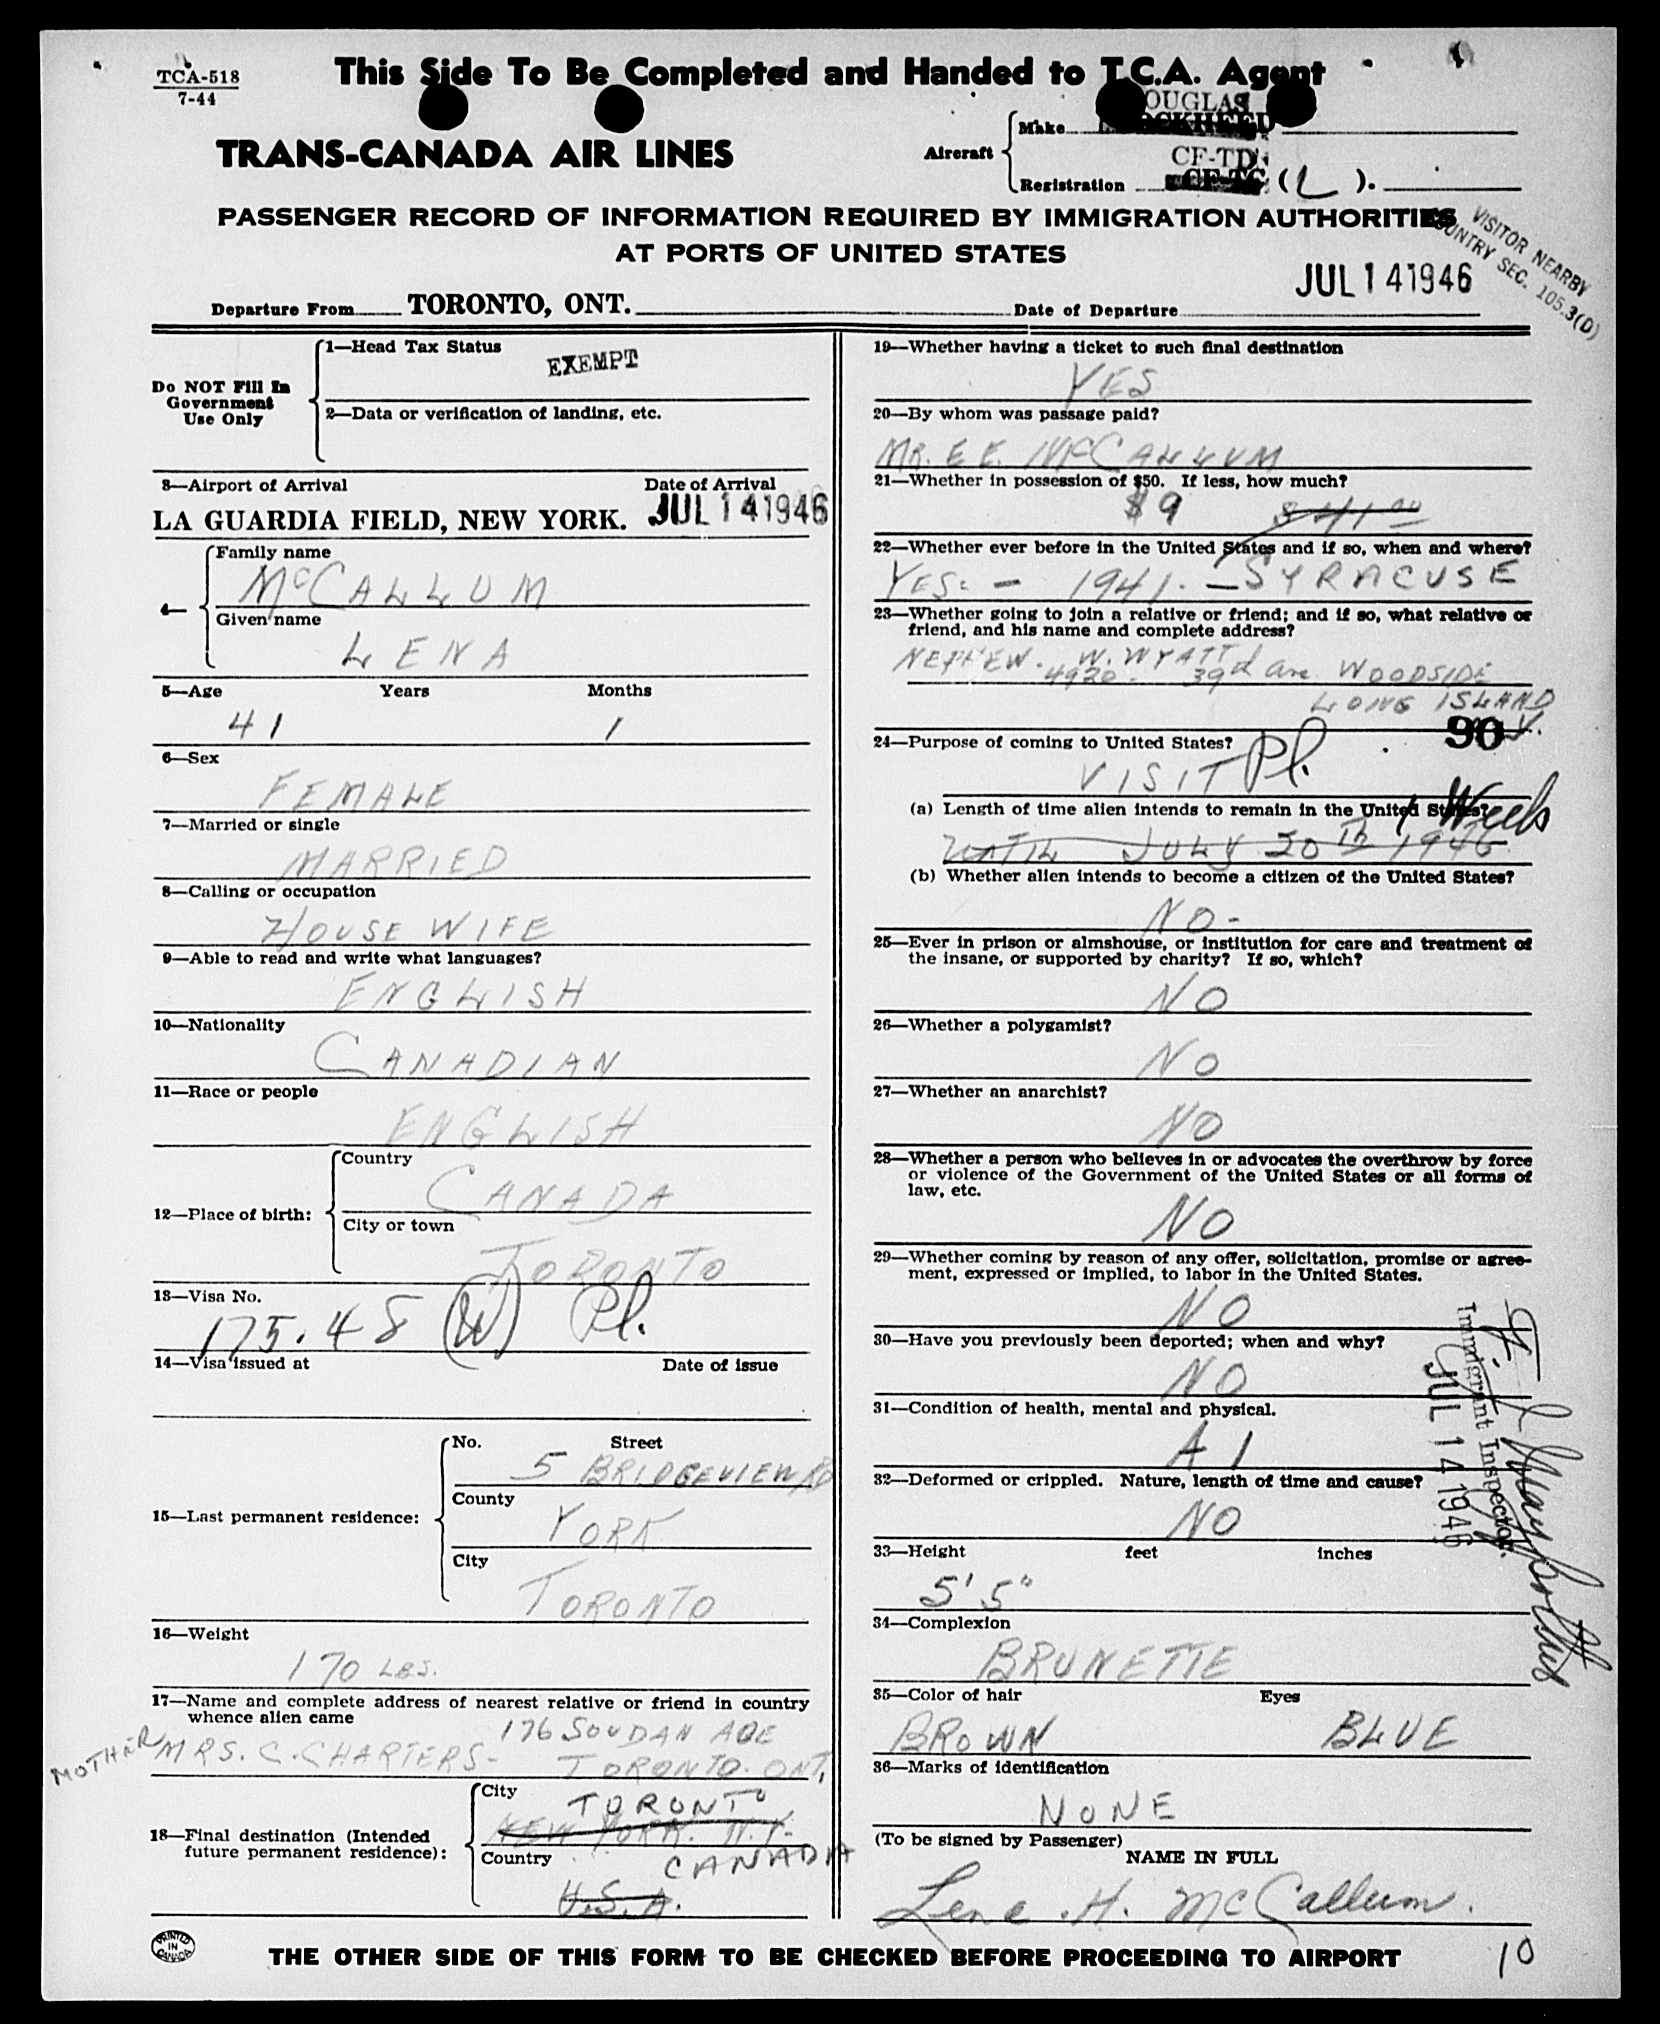 TCA-518
7-44
This Side To Be Completed and Handed to T.C.A. Agent
TRANS-CANADA AIR LINES
Aircraft
Make
OUGLAS
Registration
CF-TD
(L).
PASSENGER RECORD OF INFORMATION REQUIRED BY IMMIGRATION AUTHORITIES
AT PORTS OF UNITED STATES
VISITOR NEARBY
COUNTRY SEC. 105.3(D)
Departure From TORONTO, ONT.
Date of Departure JUL 14 1946
Do NOT Fill In
Government
Use Only
1—Head Tax Status
EXEMPT
2—Data or verification of landing, etc.
3—Airport of Arrival Date of Arrival
LA GUARDIA FIELD, NEW YORK. JUL 14 1946
4—
Family name
McCALLUM
Given name
LENA
5—Age Years Months
41 1
6—Sex
FEMALE
7—Married or single
MARRIED
8—Calling or occupation
HOUSE WIFE
9—Able to read and write what languages?
ENGLISH
10—Nationality
CANADIAN
11—Race or people
ENGLISH
12—Place of birth:
Country
CANADA
City or town
TORONTO
13—Visa No.
175.48 (W) Pl.
14—Visa issued at Date of issue
15—Last permanent residence:
No. Street
5 BRIDGEVIEW RD
County
YORK
City
TORONTO
16—Weight
170 LBS.
17—Name and complete address of nearest relative or friend in country
whence alien came
176 SOUDAN AVE
MOTHER MRS. C. CHARTERS- TORONTO. ONT,
18—Final destination (Intended
future permanent residence):
City
TORONTO
NEW YORK. N.Y.
Country
CANADA
U.S.A.
19—Whether having a ticket to such final destination
YES
20—By whom was passage paid?
MR. E E. McCALLUM
21—Whether in possession of $50. If less, how much?
$9 $41 00
22—Whether ever before in the United States and if so, when and where?
YES: - 1941. - SYRACUSE
23—Whether going to join a relative or friend; and if so, what relative or
friend, and his name and complete address?
NEPHEW. W. WYATT
4920. 39d Ave. WOODSIDE
LONG ISLAND
90
24—Purpose of coming to United States?
VISIT Pl.
(a) Length of time alien intends to remain in the United States?
1 Week
UNTIL JULY 20th 1946
(b) Whether alien intends to become a citizen of the United States?
NO-
25—Ever in prison or almshouse, or institution for care and treatment of
the insane, or supported by charity? If so, which?
NO
26—Whether a polygamist?
NO
27—Whether an anarchist?
NO
28—Whether a person who believes in or advocates the overthrow by force
or violence of the Government of the United States or all forms of
law, etc.
NO
29—Whether coming by reason of any offer, solicitation, promise or agree-
ment, expressed or implied, to labor in the United States.
NO
30—Have you previously been deported; when and why?
NO
31—Condition of health, mental and physical.
A1
32—Deformed or crippled. Nature, length of time and cause?
NO
Immigrant Inspector.
JUL 14 1946
33—Height feet inches
5' 5"
34—Complexion
BRUNETTE
35—Color of hair Eyes
BROWN BLUE
36—Marks of identification
NONE
(To be signed by Passenger)
NAME IN FULL
Lena .H. McCallum.
PRINTED
IN
CANADA
THE OTHER SIDE OF THIS FORM TO BE CHECKED BEFORE PROCEEDING TO AIRPORT
10